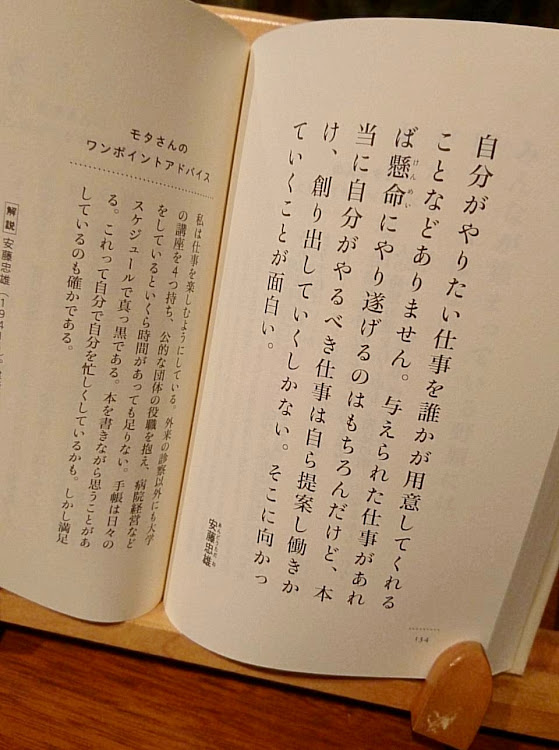 自分がやりたい仕事を誰かが用意してくれる
ことなどありません。与えられた仕事があれ
ば懸命にやり遂げるのはもちろんだけど、本
けんめい
当に自分がやるべき仕事は自ら提案し働きか
け、創り出していくしかない。そこに向かっ
ていくことが面白い。
安藤忠雄
あんどうただお
134
モタさんの
ワンポイントアドバイス
私は仕事を楽しむようにしている。外来の診察以外にも大学
の講座を4つ持ち、公的な団体の役職を抱え、病院経営など
をしているといくら時間があっても足りない。手帳は日々の
スケジュールで真っ黒である。本を書きながら思うことがあ
る。これって自分で自分を忙しくしているかも。しかし満足
しているのも確かである。
解説 安藤忠雄(1941